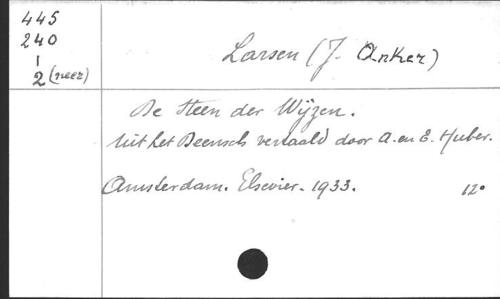 445
240
1
2 (neer)
Larsen (J. Anker)
De Steen der Wijzen.
Uit het Deensch vertaald door A. en E. Huber.
Amsterdam. Elsevier. 1933. 12°